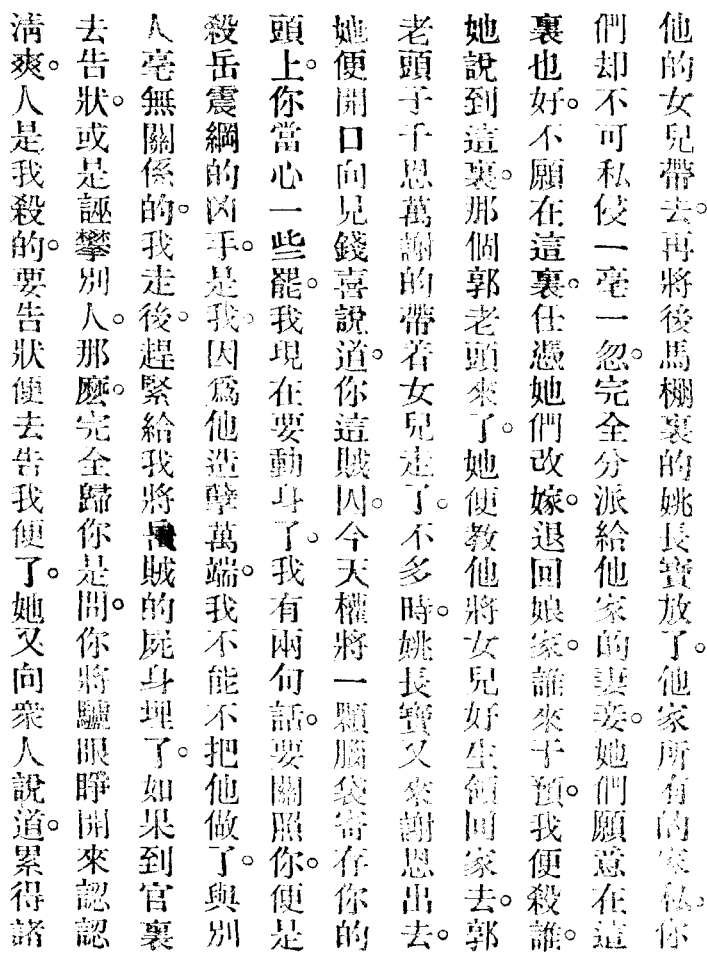 他的女兒帶去。再將後馬棚裏的姚長寶放了。他家所有的家私。你
們却不可私侵一毫一忽。完全分派給他家的妻妾。她們願意在這
裏也好。不願在這裏。任憑她們改嫁。退回娘家。誰來干預。我便殺誰。
她說到這裏。那個郭老頭來了。她便教他將女兒好生領回家去。郭
老頭子千恩萬謝的帶着女兒走了。不多時。姚長寶又來謝恩出去。
她便開口向見錢喜說道。你這賊囚。今天權將一顆腦袋寄存你的
頭上。你當心一些罷。我現在要動身了。我有兩句話。要關照你。便是
殺岳震綱的凶手。是我。因爲他造孽萬端。我不能不把他做了。與別
人毫無關係的。我走後。趕緊給我將岳賊的屍身埋了。如果到官裏
去告狀。或是誣攀別人。那麽。完全歸你是問。你將驢眼睜開來認認
淸爽。人是我殺的。要告狀便去告我便了。她又向衆人說道。累得諸